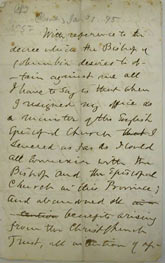 With reference to the
decree which the Bishop of
Columbia desires to ob-
tain against me all
I have to say is that when
I resigned my office as
a minister of the English
Episcopal Church I
severed as far as I could
all connexion with the
Bishop and the Episcopal
Church in this Province;
and abandoned all
benefits arising
from the Christ Church
Trust, all